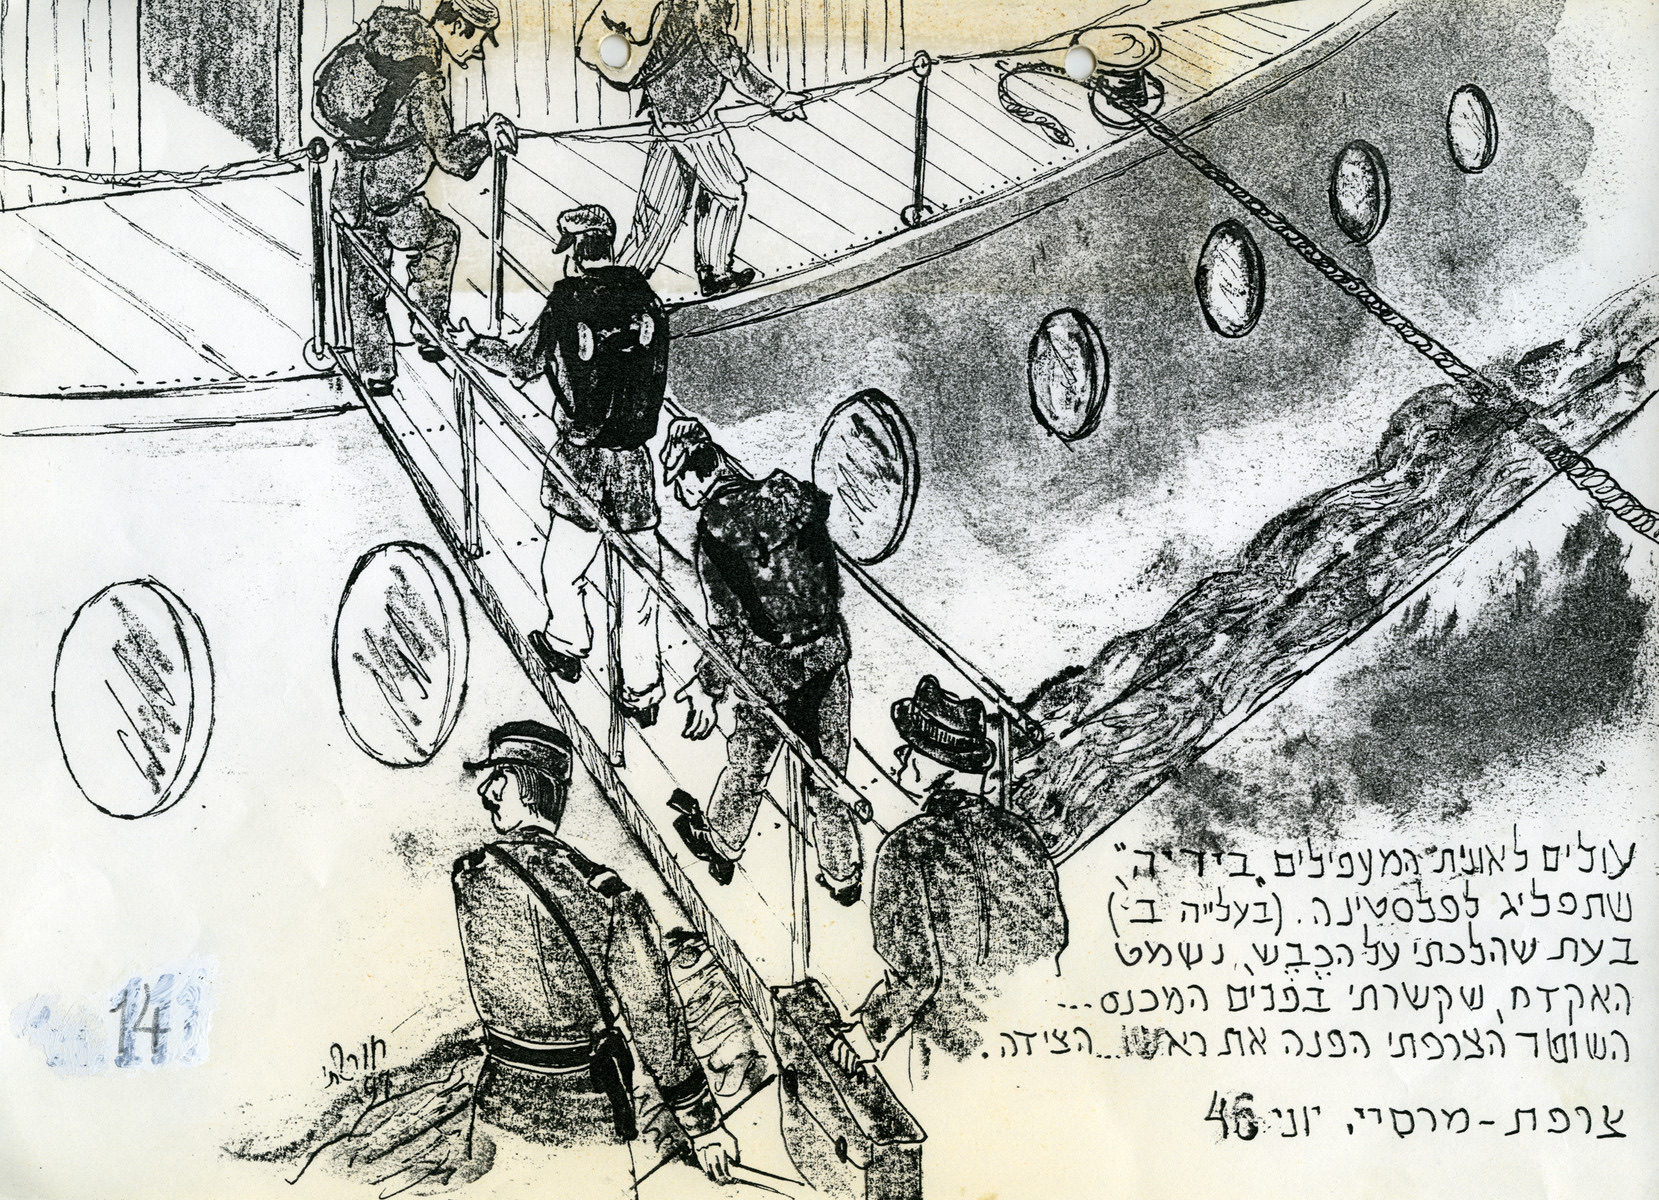 עולים לאונית המעפילים "ביריה",
שתפליג לפלסטינה. (בעלייה ב')
בעת שהלכתי על הכבש, נשמט
האקדח, שקשרתי בפנים המכנס...
השוטר הצרפתי הפנה את ראשו...הצידה.
צרפת - מרסיי, יוני 46
14